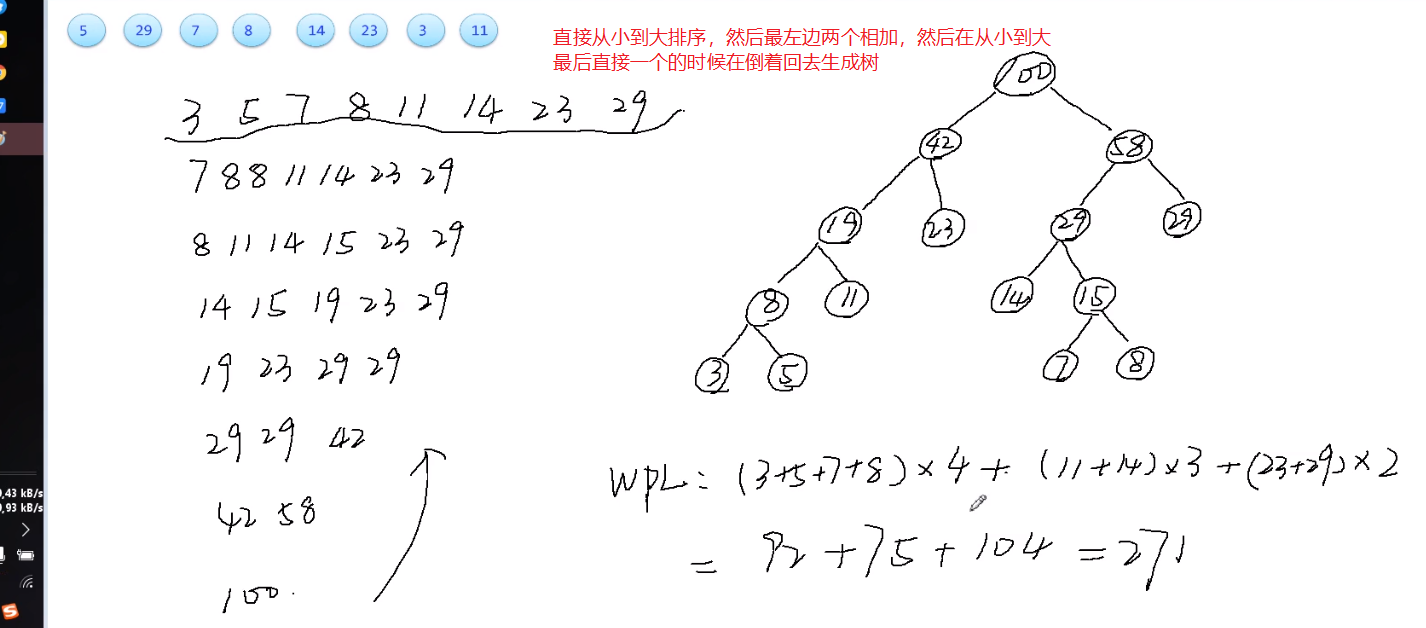 5 29 7 8 14 23 3 11
直接从小到大排序，然后最左边两个相加，然后在从小到大
最后直接一个的时候在倒着回去生成树
3 5 7 8 11 14 23 29
7 8 8 11 14 23 29
8 11 14 15 23 29
14 15 19 23 29
19 23 29 29
29 29 42
42 58
100
100
42 58
19 23 29 29
8 11 14 15
3 5 7 8
WPL = (3+5+7+8)×4 + (11+14)×3 + (23+29)×2
= 92 + 75 + 104 = 271
0,43 kB/s
0,93 kB/s